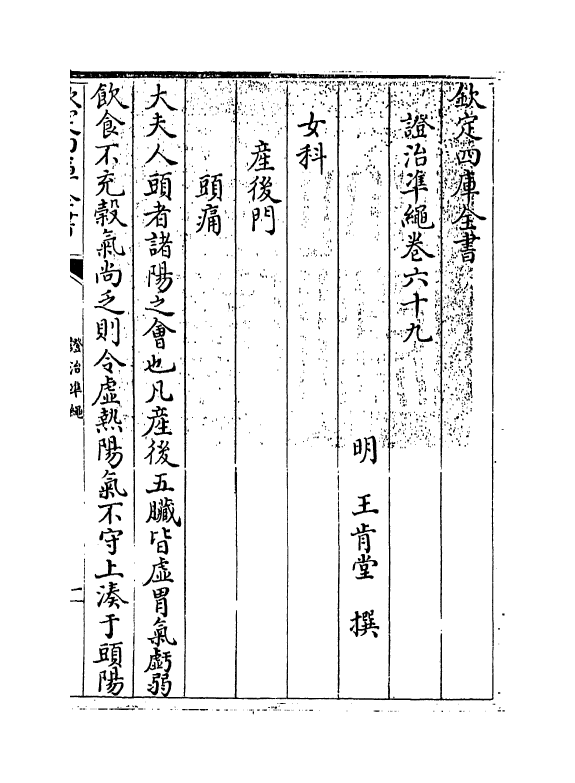 欽定四庫全書
證治準繩卷六十九
明 王肯堂 撰
女科
産後門
頭痛
大夫人頭者諸陽之會也凡産後五臟皆虛胃氣虧弱
飲食不充穀氣尚乏則令虛熱陽氣不守上湊于頭陽
欽定四庫全書
證治準繩